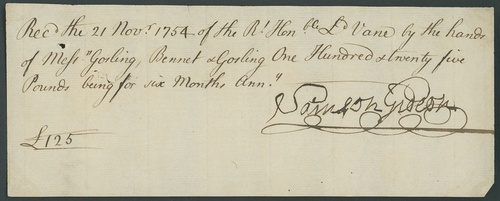 Rec'd the 21 Novr. 1754 of the Rt. Honble. Ld Vane by the hands
of Messrs Gosling, Bennet & Gosling One Hundred & twenty five
Pounds being for six Months Ann.y
Sampson Gideon
£125